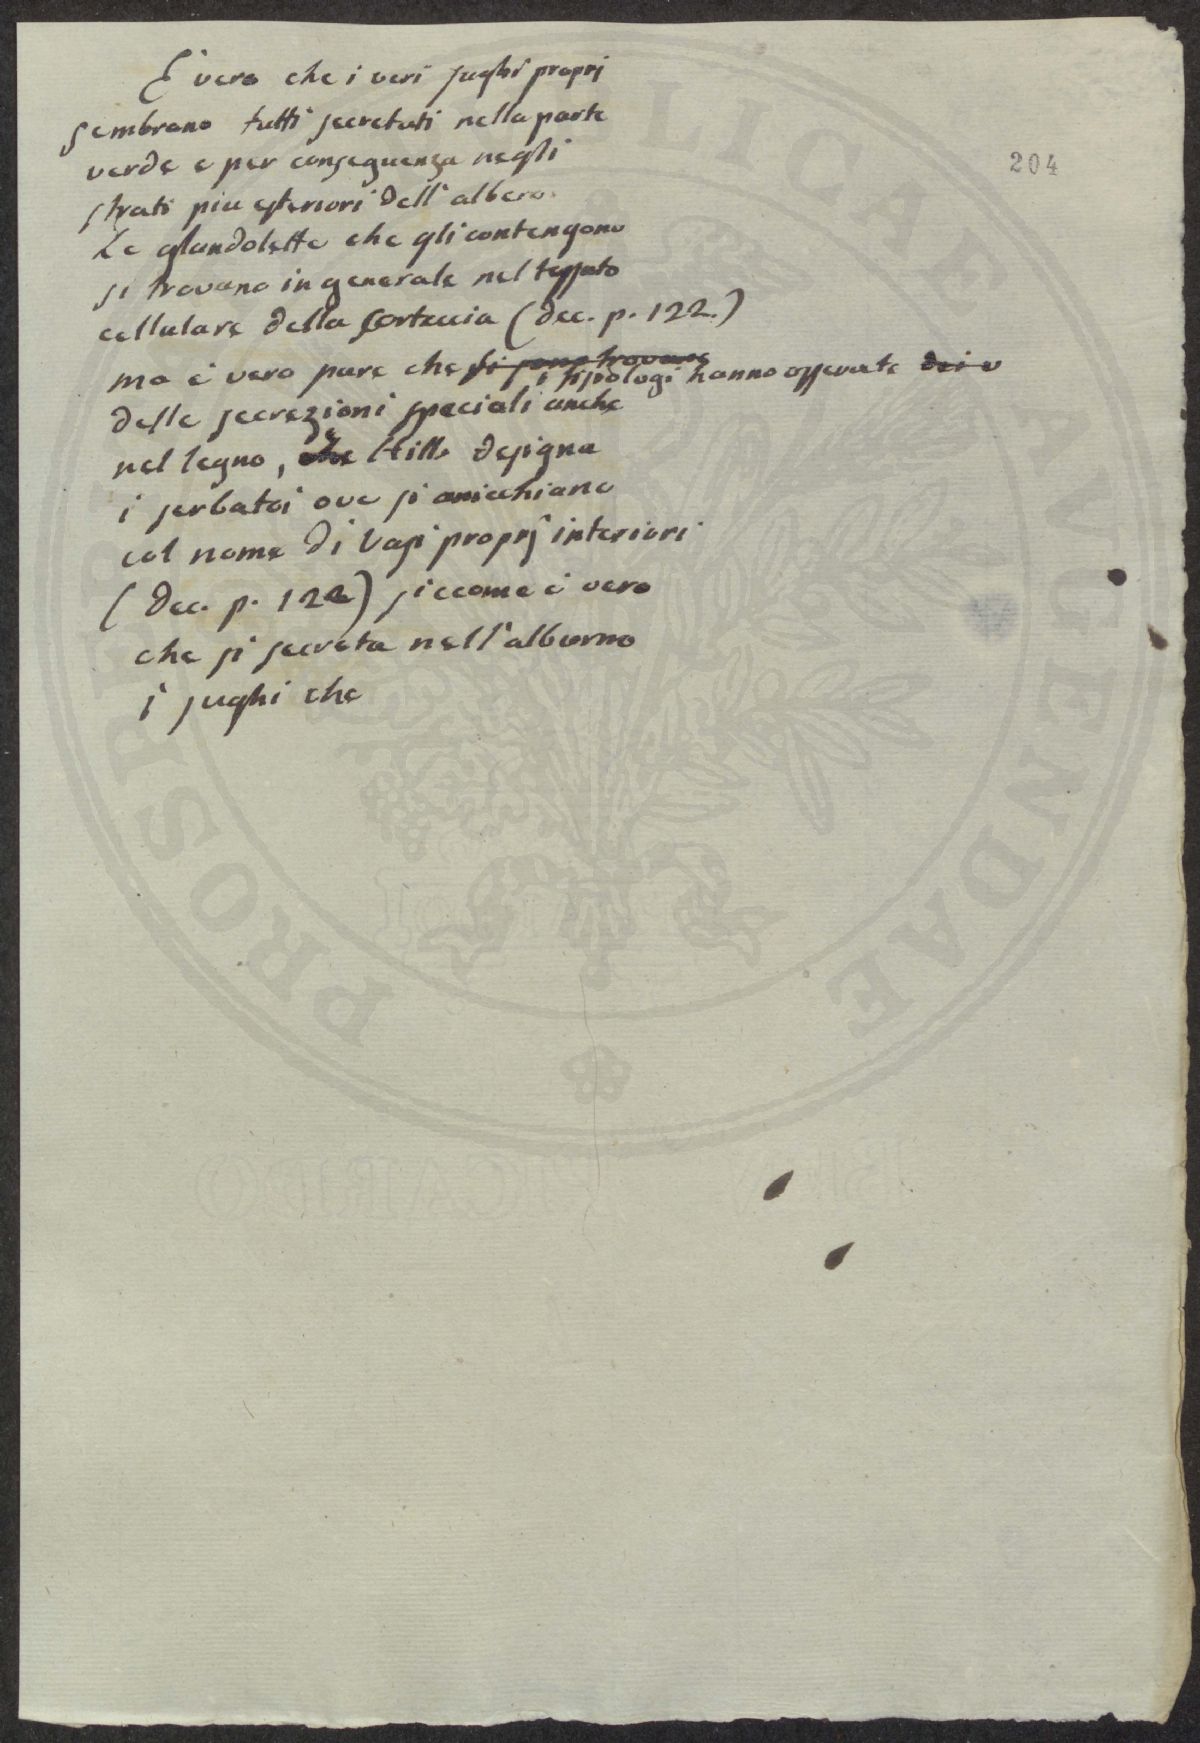 È vero che i veri sughi proprj
sembrano tutti secretati nella parte
verde e per conseguenza negli
strati piu esteriori dell'albero.
Le glandolette che gli contengono
si trovano in generale nel tessuto
cellulare della Corteccia (Dec. p. 122.)
204
ma è vero pure che si sono trovare
i fisiologi hanno osservate dei v
delle secrezioni speciali anche
nel legno, che Hill designa
i serbatoi ove si annicchiano
col nome di Vasi proprj interiori
(Dec. p. 122) siccome è vero
che si secreta nell'alburno
i sughi che
PROSPE LICAE AUGENDAE